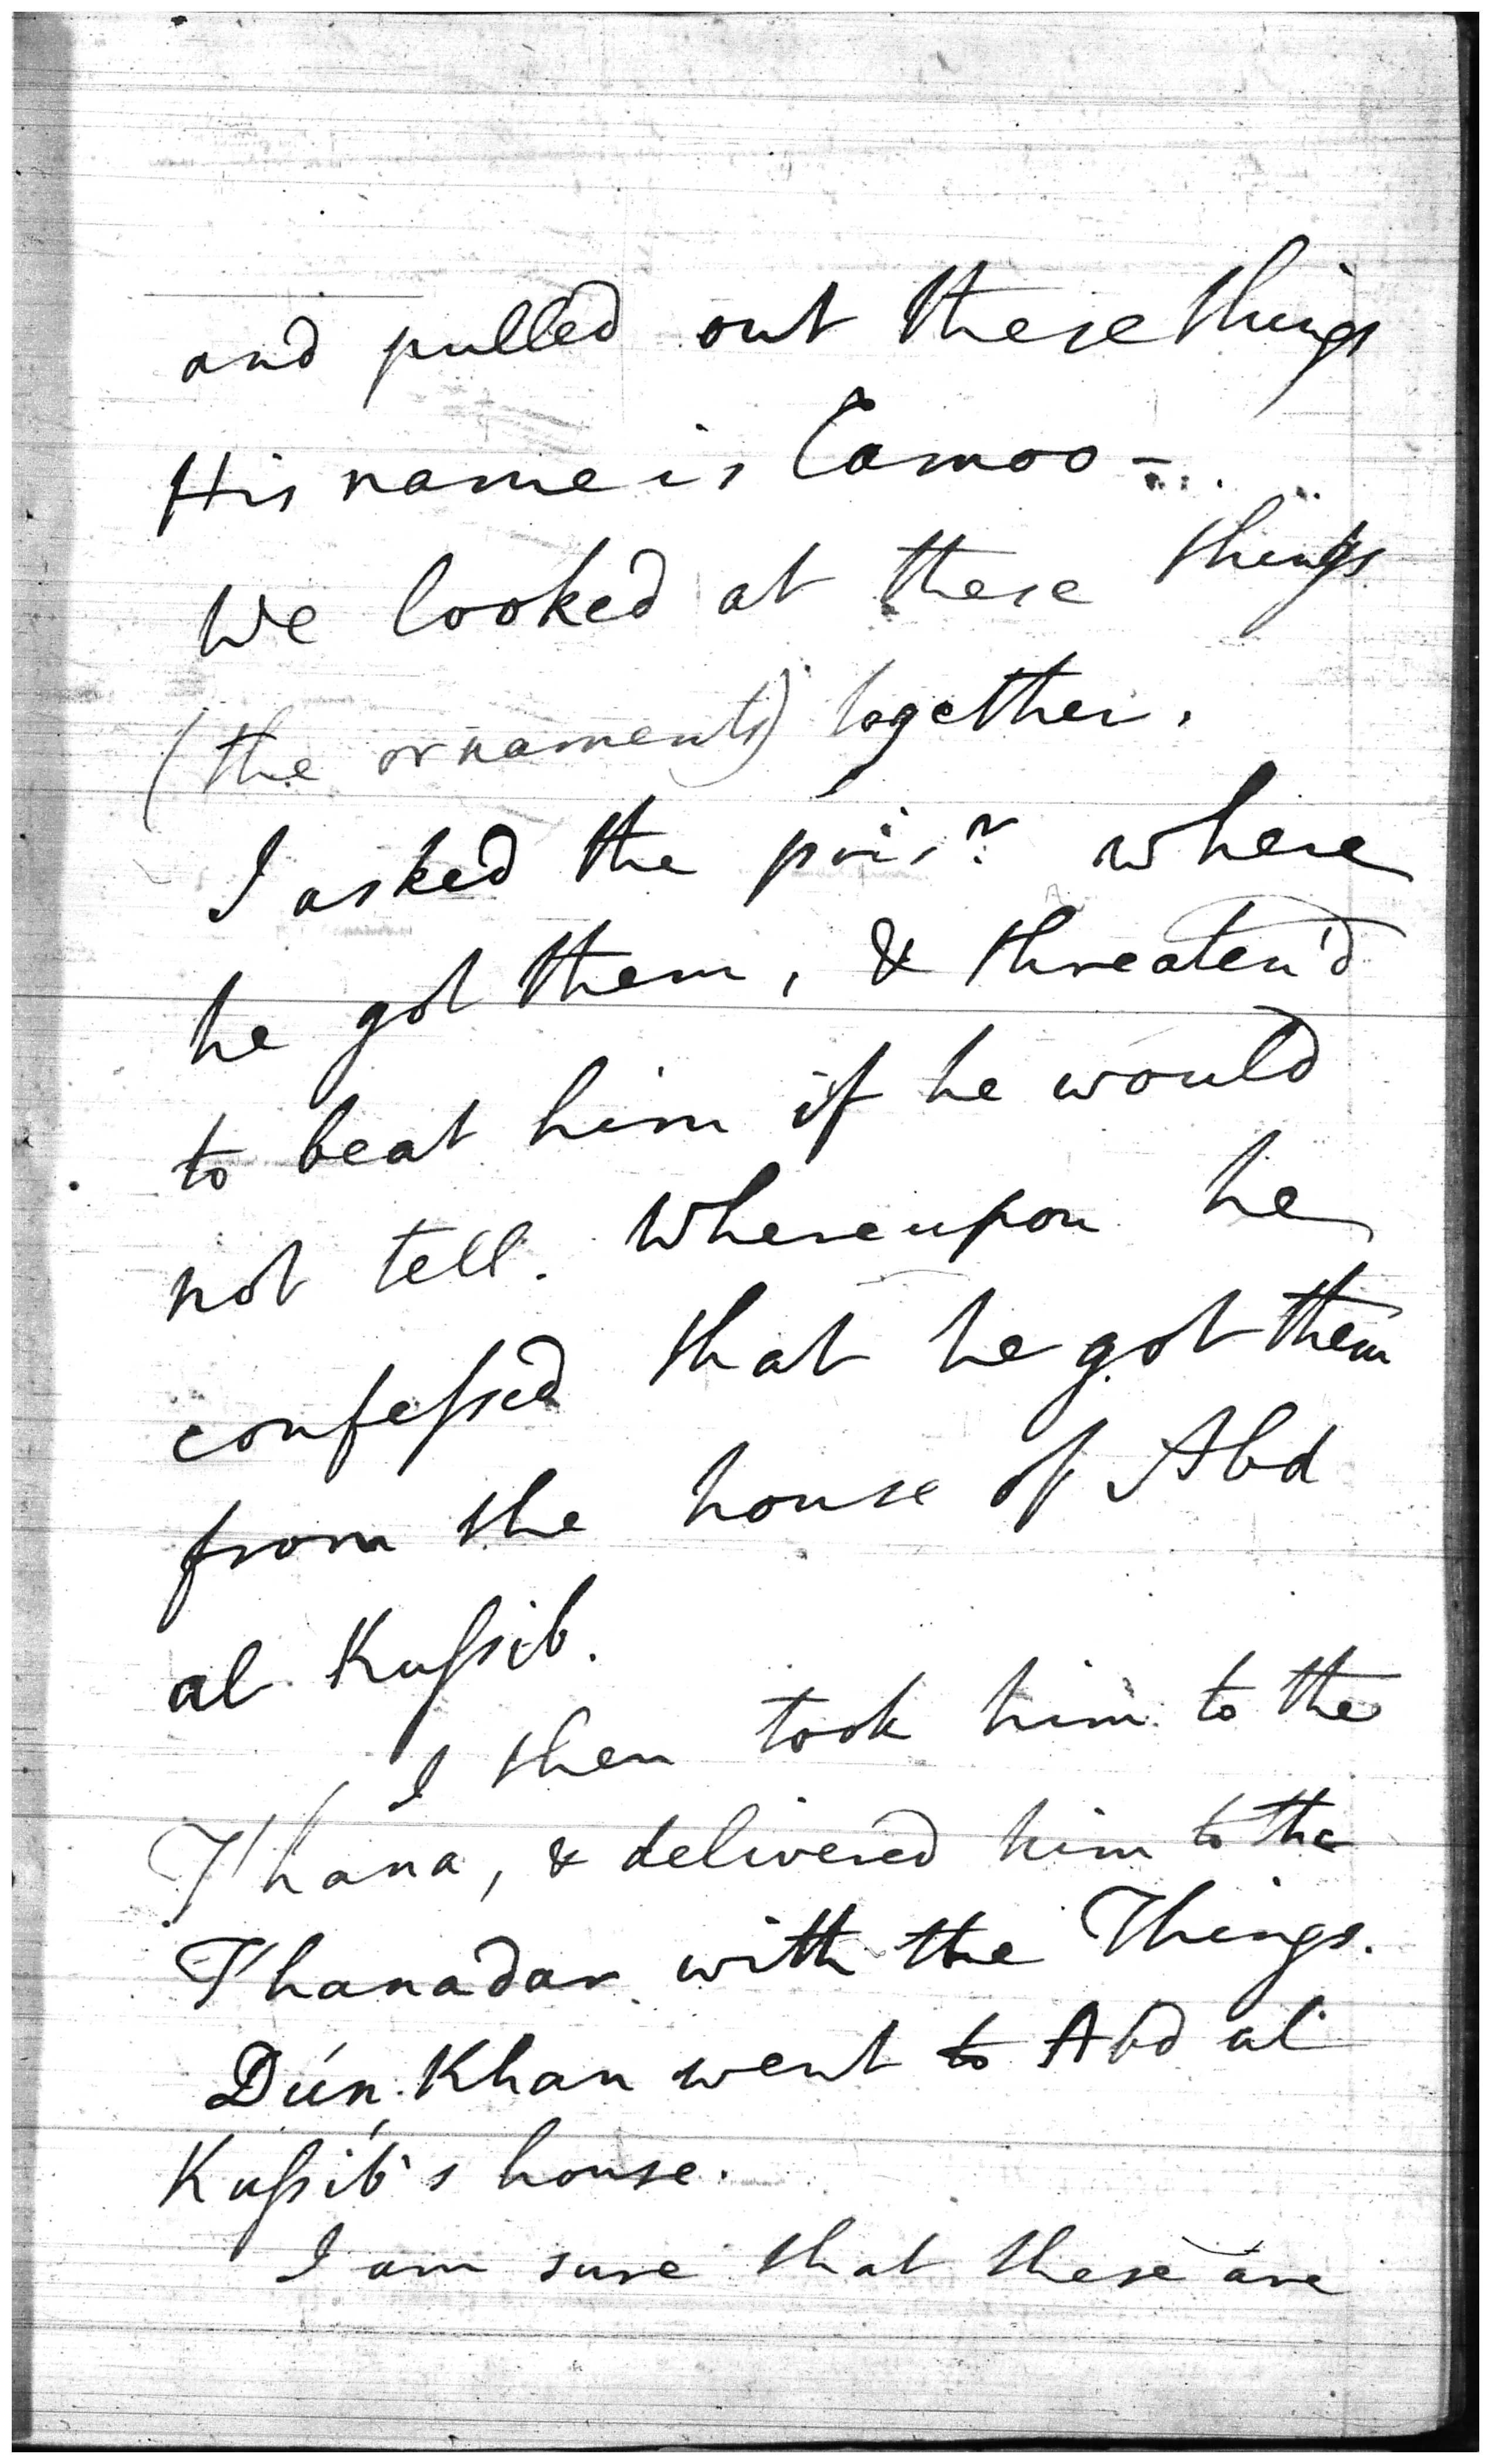 and pulled out these things
His name is Camoo -
We looked at these things
(the ornaments) together.
I asked the pris.r where
he got them, & threaten'd
to beat him if he would
not tell. Whereupon he
confeſsed that he got them
from the house of Abd
al Kuſsib.
I then took him to the
Thana, & delivered him to the
Thanadar with the Things.
Dún Khan went to Abd al
Kuſsib's house.
I am sure that these are